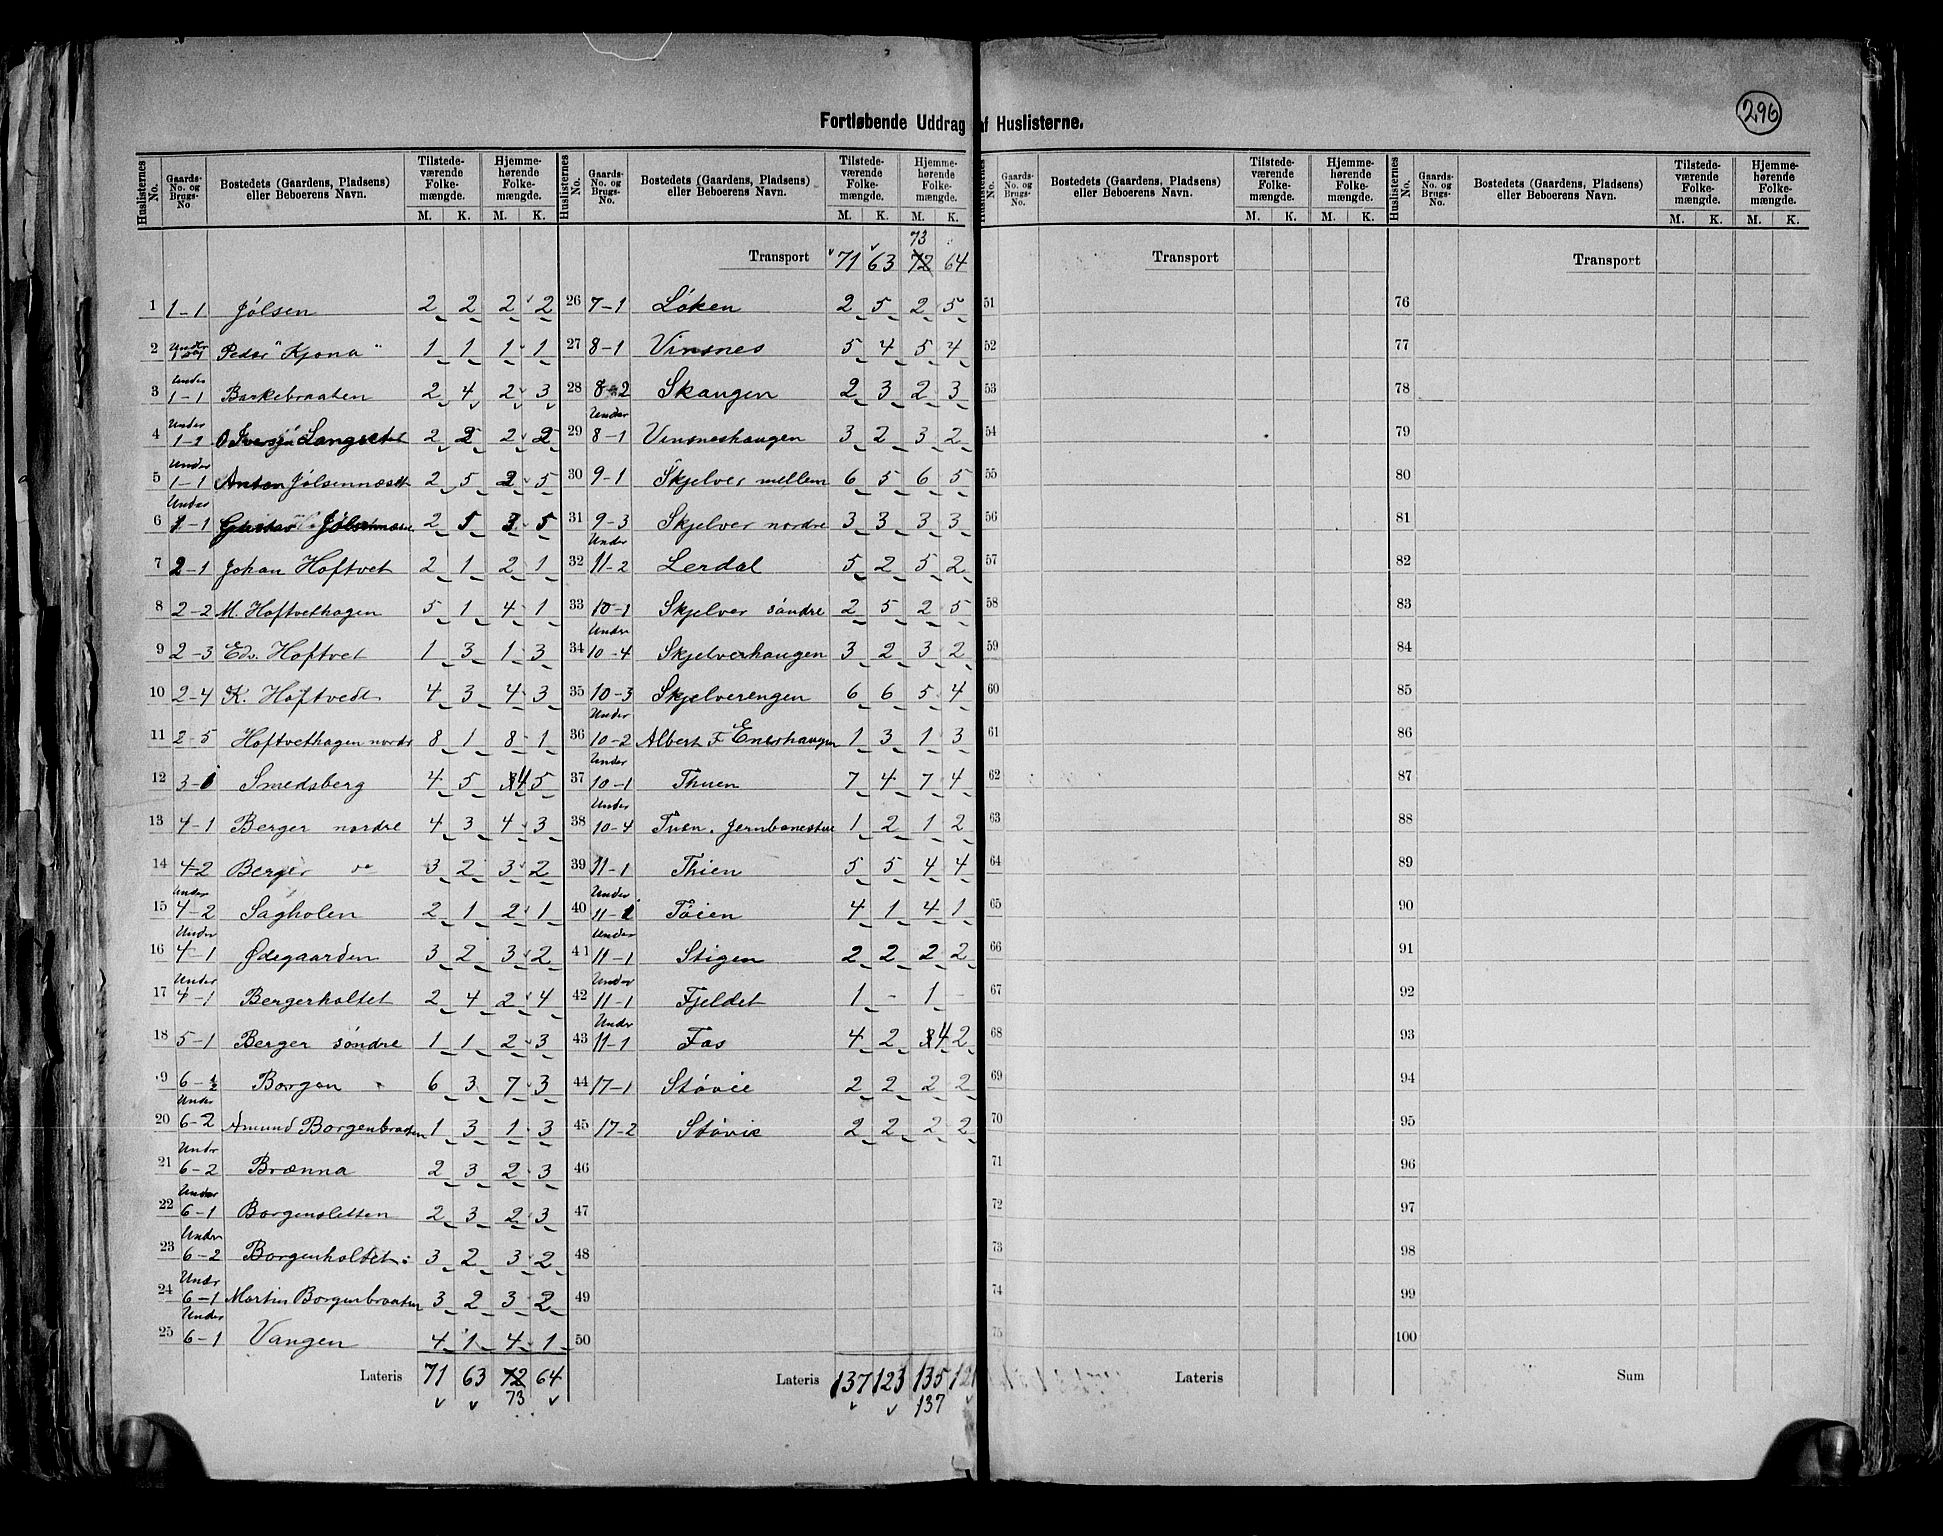 296
Fortløbende Uddrag af Huslisterne.
Huslisternes No. Gaards-No. og Brugs-No. Bostedets (Gaardens, Pladsens) eller Beboerens Navn. Tilstedeværende Folkemængde. M. K. Hjemmehørende Folkemængde. M. K.
1 1-1 Jølsen 2 2 2 2
2 Under 1-1 Peder "Kjona" 1 1 1 1
3 Under 1-1 Barkebraaten 2 4 2 3
4 Under 1-1 Langsetel 2 2 2 2
5 Under 1-1 Anton Jølsennæset 2 5 2 5
6 Under 1-1 2 5 3 5
7 2-1 Johan Hoftvet 2 1 2 1
8 2-2 M. Hoftvethagen 5 1 4 1
9 2-3 Edv. Hoftvet 1 3 1 3
10 2-4 K. Hoftvedt 4 3 4 3
11 2-5 Hoftvethagen nordr 8 1 8 1
12 3-1 Smedsberg 4 5 4 5
13 4-1 Berger nordre 4 3 4 3
14 4-2 Berger do 3 2 3 2
15 Under 4-2 Sagholen 2 1 2 1
16 Under 4-1 Ødegaarden 3 2 3 2
17 Under 4-1 Bergerholtet 2 4 2 4
18 5-1 Berger søndre 1 1 2 3
19 6-1/2 Borgen 6 3 7 3
20 Under 6-2 Amund Borgenbraaten 1 3 1 3
21 Under 6-2 Brænna 2 3 2 3
22 Under 6-1 Borgensletten 2 3 2 3
23 Under 6-2 Borgenholdet: 3 2 3 2
24 Under 6-1 Martin Borgenbraaten 3 2 3 2
25 Under 6-1 Vangen 4 1 4 1
Lateris 71 63 72 64
73
Huslisternes No. Gaards-No. og Brugs-No. Bostedets (Gaardens, Pladsens) eller Beboerens Navn. Tilstedeværende Folkemængde. M. K. Hjemmehørende Folkemængde. M. K.
73
Transport 71 63 72 64
26 7-1 Löken 2 5 2 5
27 8-1 Vinsnes 5 4 5 4
28 8-2 Skaugen 2 3 2 3
29 Under 8-1 Vinsneshaugen 3 2 3 2
30 9-1 Skjelver mellem 6 5 6 5
31 9-3 Skjelver nordre 3 3 3 3
32 Under 11-2 Lerdal 5 2 5 2
33 10-1 Skjelver söndre 2 5 2 5
34 Under 10-4 Skjelverhaugen 3 2 3 2
35 10-3 Skjelverengen 6 6 5 4
36 Under 10-2 Albert F Eneshaugen 1 3 1 3
37 Under 10-1 Thuen 7 4 7 4
38 Under 10-4 Tuen. Jernbanestue 1 2 1 2
39 11-1 Thien 5 5 4 4
40 Under 11-1 Töien 4 1 4 1
41 Under 11-1 Stigen 2 2 2 2
42 Under 11-1 Fjeldet 1 - 1 -
43 Under 11-1 Fos 4 2 4 2
44 17-1 Støvie 2 2 2 2
45 17-2 Støvie 2 2 2 2
46
47
48
49
50
Lateris 137 123 135 121
137
Huslisternes No. Gaards-No. og Brugs-No. Bostedets (Gaardens, Pladsens) eller Beboerens Navn. Tilstedeværende Folkemængde. M. K. Hjemmehørende Folkemængde. M. K.
Transport
51
52
53
54
55
56
57
58
59
60
61
62
63
64
65
66
67
68
69
70
71
72
73
74
75
Lateris
Huslisternes No. Gaards-No. og Brugs-No. Bostedets (Gaardens, Pladsens) eller Beboerens Navn. Tilstedeværende Folkemængde. M. K. Hjemmehørende Folkemængde. M. K.
Transport
76
77
78
79
80
81
82
83
84
85
86
87
88
89
90
91
92
93
94
95
96
97
98
99
100
Sum